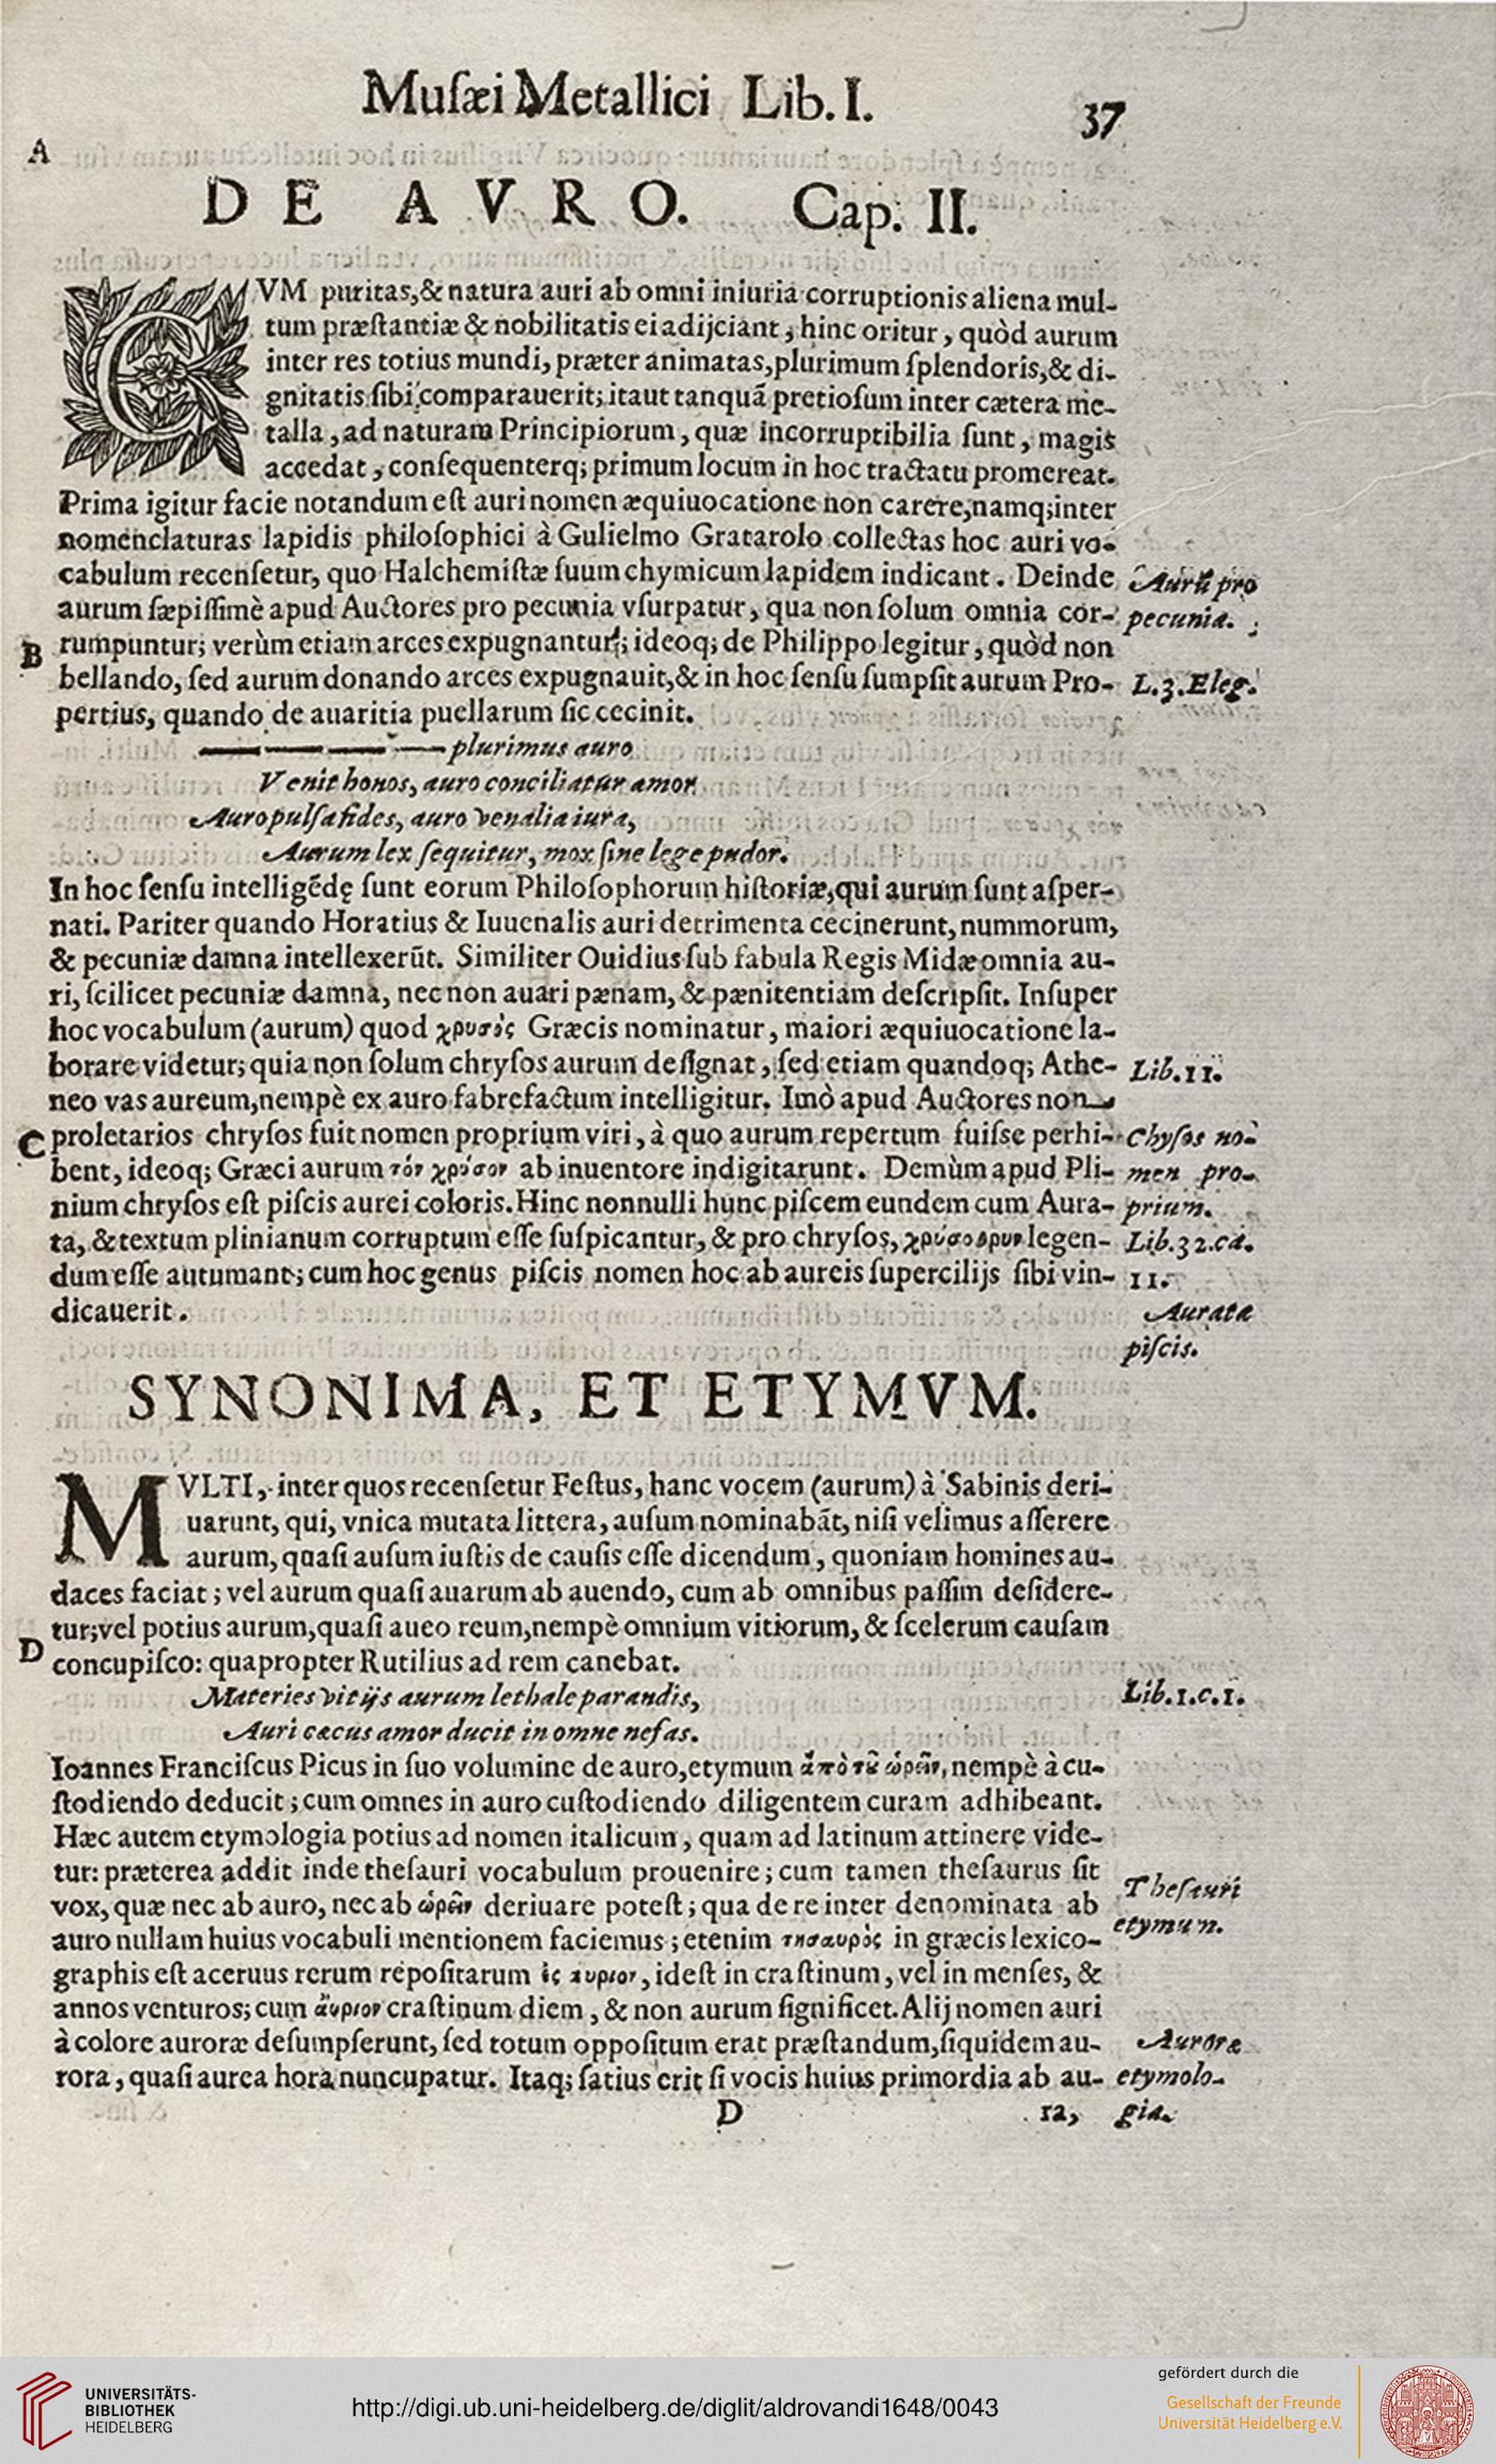 Muſæi Metallici Lib. I. 37
A
DE AVRO. Cap. II.
CVM puritas,& natura auri ab omni iniuria corruptionis aliena mul-
tum præſtantiæ & nobilitatis ei adijciant, hinc oritur, quòd aurum
inter res totius mundi, præter animatas, plurimum ſplendoris,& di-
gnitatis ſibi comparauerit; itaut tanquã pretioſum inter cætera me-
talla, ad naturam Principiorum, quæ incorruptibilia ſunt, magis
accedat, conſequenterq; primum locum in hoc tractatu promereat.
Prima igitur facie notandum eſt auri nomen æquiuocatione non carere, namq; inter
nomenclaturas lapidis philoſophici à Gulielmo Gratarolo collectas hoc auri vo-
cabulum recenſetur, quo Halchemiſtæ ſuum chymicum lapidem indicant. Deinde
Aurũ pro
aurum ſæpiſſimè apud Auctores pro pecunia vſurpatur, qua non ſolum omnia cor-
pecunia.
B
rumpuntur; verùm etiam arces expugnantur; ideoq; de Philippo legitur, quòd non
bellando, ſed aurum donando arces expugnauit,& in hoc ſenſu ſumpſit aurum Pro-
L.3.Eleg.
pertius, quando de auaritia puellarum ſic cecinit.
———— plurimus auro
Venit honos, auro conciliatur amor
Auro pulſa fides, auro venalia iura,
Aurum lex ſequitur, mox ſine lege pudor.
In hoc ſenſu intelligẽdę ſunt eorum Philoſophorum hiſtoriæ, qui aurum ſunt aſper-
nati. Pariter quando Horatius & Iuuenalis auri detrimenta cecinerunt, nummorum,
& pecuniæ damna intellexerũt. Similiter Ouidius ſub fabula Regis Midæ omnia au-
ri, ſcilicet pecuniæ damna, nec non auari pænam, & pænitentiam deſcripſit. Inſuper
hoc vocabulum (aurum) quod χρυσὸς Græcis nominatur, maiori æquiuocatione la-
borare videtur; quia non ſolum chryſos aurum deſignat, ſed etiam quandoq; Athe-
Lib.11.
neo vas aureum, nempè ex auro fabrefactum intelligitur. Imò apud Auctores non
C
proletarios chryſos fuit nomen proprium viri, à quo aurum repertum fuiſse perhi-
Chyſos no-
bent, ideoq; Græci aurum τόν χρύσον ab inuentore indigitarunt. Demùm apud Pli-
men pro-
nium chryſos eſt piſcis aurei coloris. Hinc nonnulli hunc piſcem eundem cum Aura-
prium.
ta, & textum plinianum corruptum eſſe ſuſpicantur, & pro chryſos, χρύσοφρυν legen-
Lib.32.ca.
dum eſſe autumant; cum hoc genus piſcis nomen hoc ab aureis ſupercilijs ſibi vin-
11.
dicauerit.
Aurata
piſcis.
SYNONIMA, ET ETYMVM.
MVLTI, inter quos recenſetur Feſtus, hanc vocem (aurum) à Sabinis deri-
uarunt, qui, vnica mutata littera, auſum nominabãt, niſi velimus aſſerere
aurum, quaſi auſum iuſtis de cauſis eſſe dicendum, quoniam homines au-
daces faciat; vel aurum quaſi auarum ab auendo, cum ab omnibus paſſim deſidere-
tur; vel potius aurum, quaſi aueo reum, nempè omnium vitiorum, & ſcelerum cauſam
D
concupiſco: quapropter Rutilius ad rem canebat.
Materies vitijs aurum lethale parandis,
Lib.1.c.1.
Auri cæcus amor ducit in omne nefas.
Ioannes Franciſcus Picus in ſuo volumine de auro, etymum ἀπὸ τȣ͂ ὡρεῖν, nempè à cu-
ſtodiendo deducit; cum omnes in auro cuſtodiendo diligentem curam adhibeant.
Hæc autem etymologia potius ad nomen italicum, quam ad latinum attinere vide-
tur: præterea addit inde theſauri vocabulum prouenire; cum tamen theſaurus ſit
Theſauri
vox, quæ nec ab auro, nec ab ὡρεῖν deriuare poteſt; qua de re inter denominata ab
etymum.
auro nullam huius vocabuli mentionem faciemus; etenim τησαυρὸς in græcis lexico-
graphis eſt aceruus rerum repoſitarum ἐς αυριον, ideſt in craſtinum, vel in menſes, &
annos venturos; cum ἄυριον craſtinum diem, & non aurum ſignificet. Alij nomen auri
à colore auroræ deſumpſerunt, ſed totum oppoſitum erat præſtandum, ſiquidem au-
Auroræ
rora, quaſi aurea hora nuncupatur. Itaq; ſatius erit ſi vocis huius primordia ab au-
etymolo-
D ra,
gia.
UNIVERSITÄTS-
BIBLIOTHEK
HEIDELBERG
http://digi.ub.uni-heidelberg.de/diglit/aldrovandi1648/0043
gefördert durch die
Gesellschaft der Freunde
Universität Heidelberg e.V.